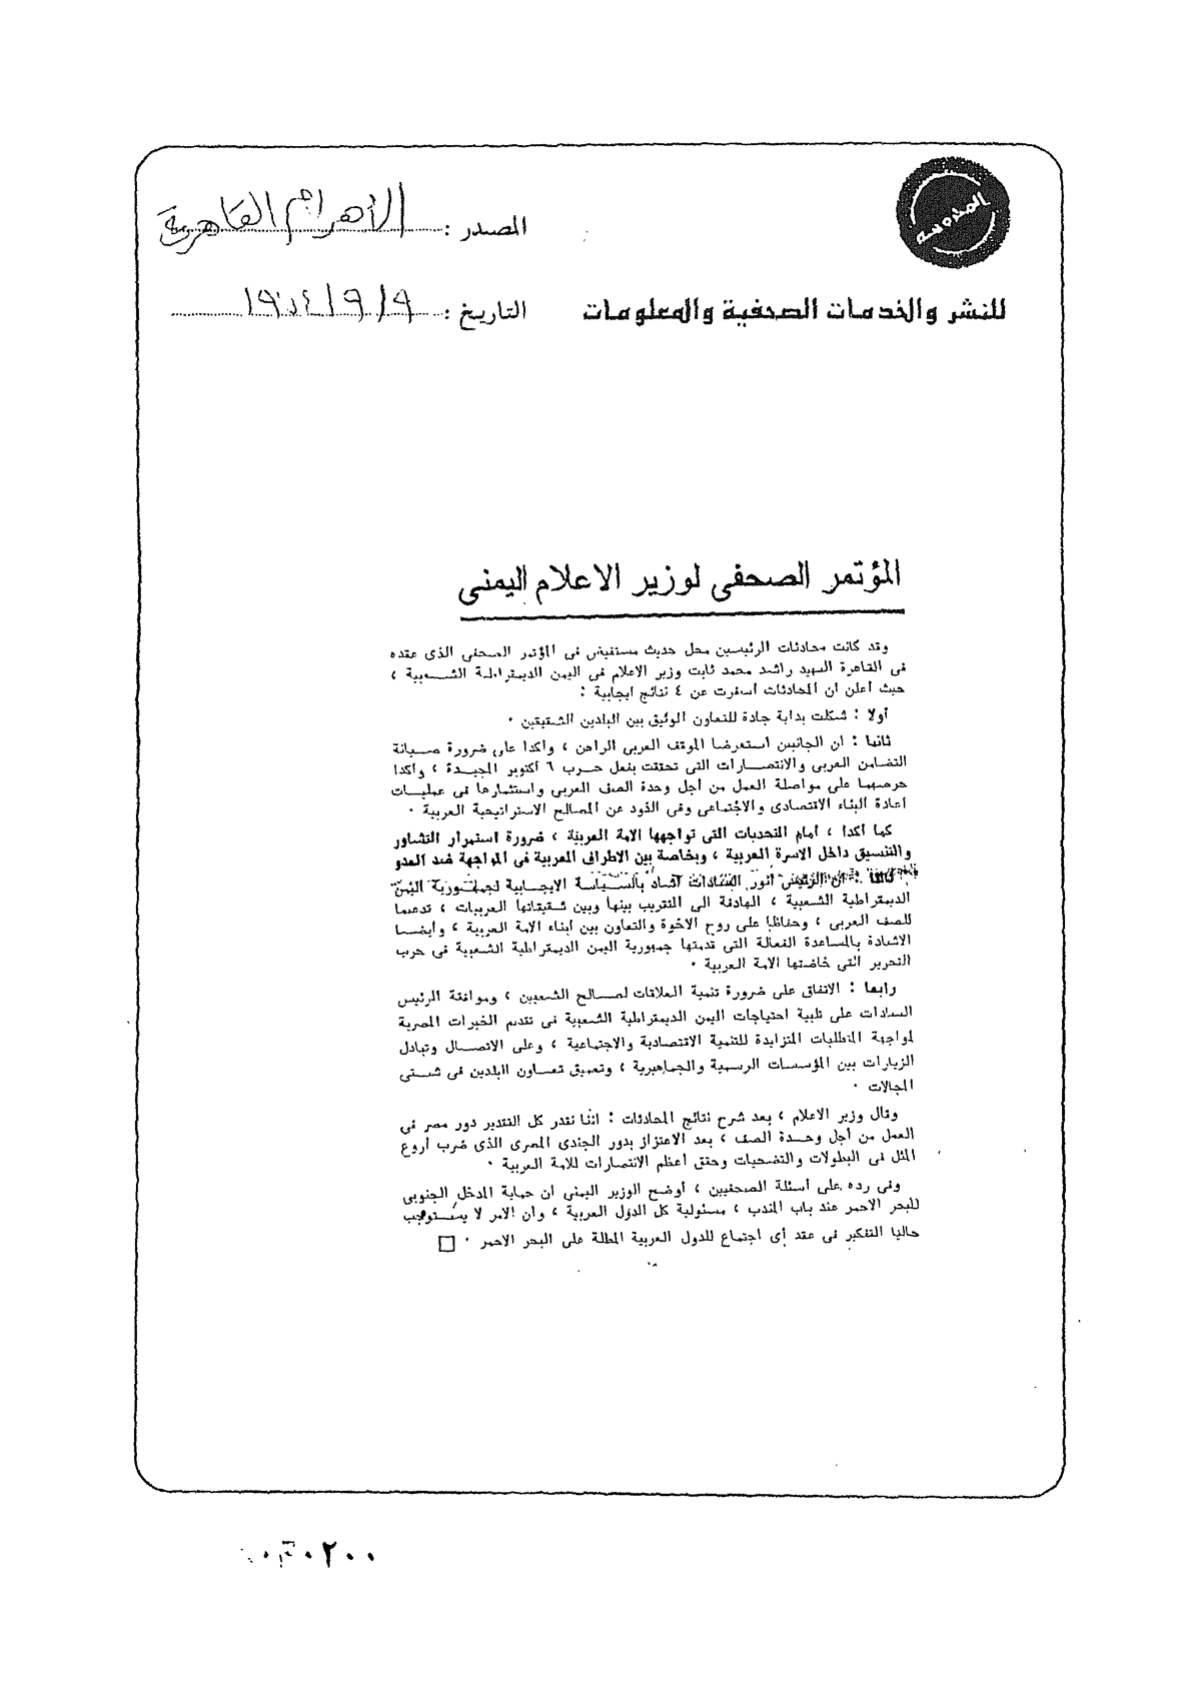 المصدر : الأهرام القاهرية
للنشر والخدمات الصحفية والمعلومات
التاريخ : ٩/٩/
المؤتمر الصحفى لوزير الاعلام اليمنى
وقد كانت محادثات الرئيسين محل حديث مستفيض فى المؤتمر الصحفى الذى عقده
فى القاهرة السيد راشد محمد ثابت وزير الاعلام فى اليمن الديمقراطية الشعبية ،
حيث أعلن ان المحادثات أسفرت عن ٤ نتائج ايجابية :
أولا : شكلت بداية جادة للتعاون الوثيق بين البلدين الشقيقين .
ثانيا : ان الجانبين استعرضا الموقف العربى الراهن ، وأكدا على ضرورة صيانة
التضامن العربى والانتصارات التى تحققت بفعل حرب ٦ أكتوبر المجيدة ، وأكدا
حرصهما على مواصلة العمل من أجل وحدة الصف العربى واستثمارها فى عمليات
اعادة البناء الاقتصادى والاجتماعى وفى الذود عن المصالح الاستراتيجية العربية .
كما أكدا ، أمام التحديات التى تواجهها الامة العربية ، ضرورة استمرار التشاور
والتنسيق داخل الاسرة العربية ، وبخاصة بين الاطراف العربية فى المواجهة ضد العدو
ثالثا : ان الرئيس أنور السادات أشاد بالسياسة الايجابية لجمهورية اليمن
الديمقراطية الشعبية ، الهادفة الى التقريب بينها وبين شقيقاتها العربيات ، تدعيما
للصف العربى ، وحفاظا على روح الاخوة والتعاون بين أبناء الامة العربية ، وأيضا
الاشادة بالمساعدة الفعالة التى قدمتها جمهورية اليمن الديمقراطية الشعبية فى حرب
التحرير التى خاضتها الامة العربية .
رابعا : الاتفاق على ضرورة تنمية العلاقات لصالح الشعبين ، وموافقة الرئيس
السادات على تلبية احتياجات اليمن الديمقراطية الشعبية فى تقديم الخبرات المصرية
لمواجهة المتطلبات المتزايدة للتنمية الاقتصادية والاجتماعية ، وعلى الاتصال وتبادل
الزيارات بين المؤسسات الرسمية والجماهيرية ، وتعميق تعاون البلدين فى شتى
المجالات .
وقال وزير الاعلام ، بعد شرح نتائج المحادثات : اننا نقدر كل التقدير دور مصر فى
العمل من أجل وحدة الصف ، بعد الاعتزاز بدور الجندى المصرى الذى ضرب أروع
المثل فى البطولات والتضحيات وحقق أعظم الانتصارات للامة العربية .
وفى رده على أسئلة الصحفيين ، أوضح الوزير اليمنى ان حماية المدخل الجنوبى
للبحر الاحمر عند باب المندب ، مسئولية كل الدول العربية ، وان الامر لا يستوجب
حاليا التفكير فى عقد أى اجتماع للدول العربية المطلة على البحر الاحمر .